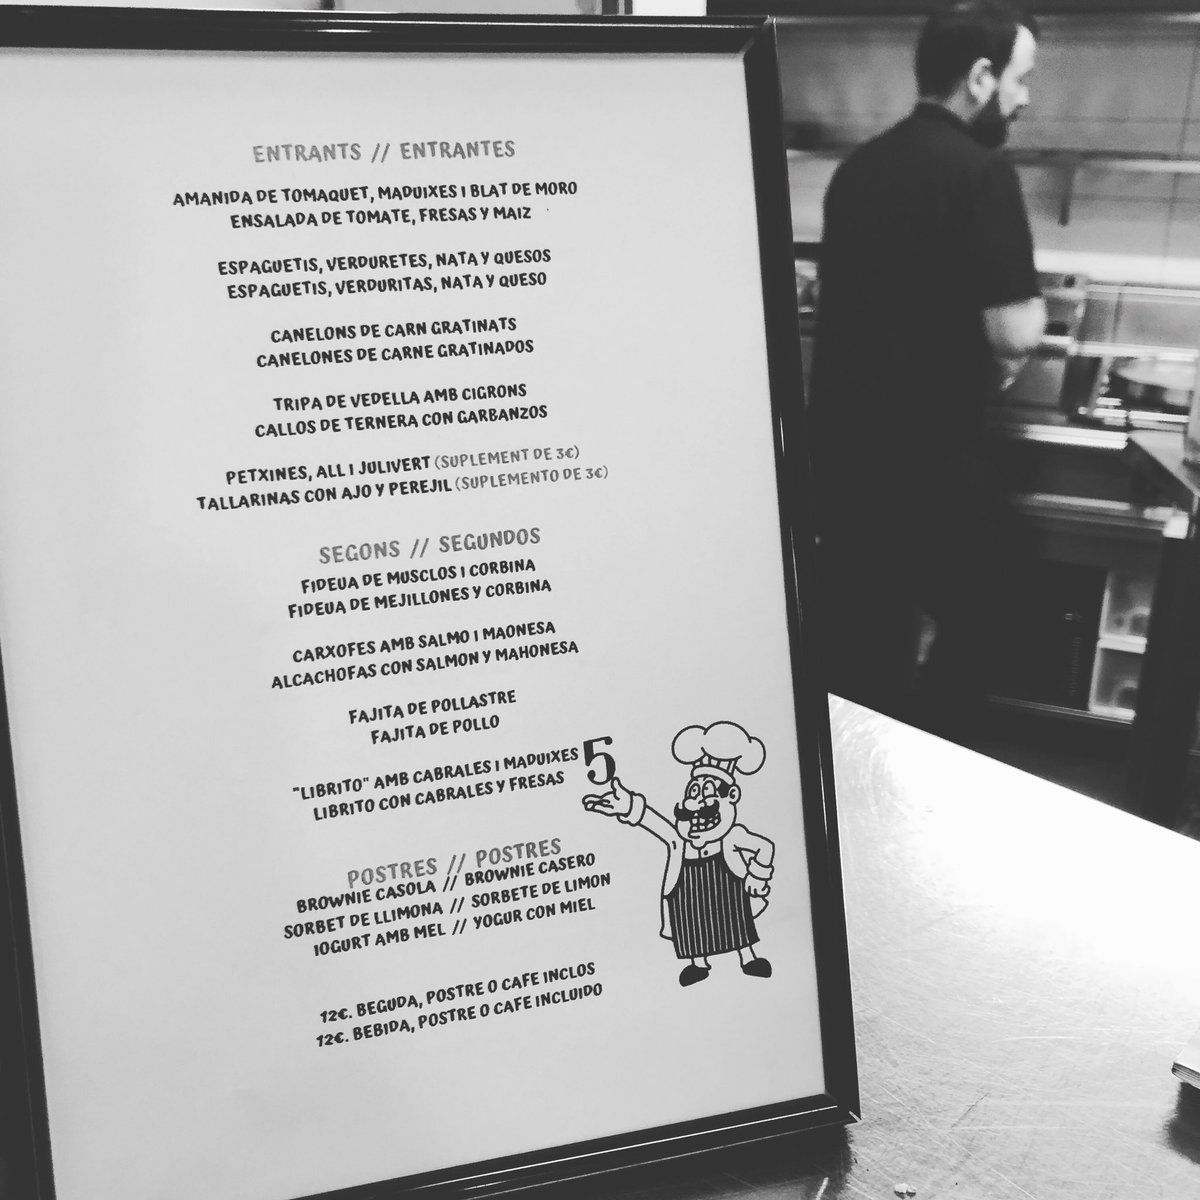 ENTRANTS // ENTRANTES
AMANIDA DE TOMAQUET, MADUIXES I BLAT DE MORO
ENSALADA DE TOMATE, FRESAS Y MAIZ
ESPAGUETIS, VERDURETES, NATA Y QUESOS
ESPAGUETIS, VERDURITAS, NATA Y QUESO
CANELONS DE CARN GRATINATS
CANELONES DE CARNE GRATINADOS
TRIPA DE VEDELLA AMB CIGRONS
CALLOS DE TERNERA CON GARBANZOS
PETXINES, ALL I JULIVERT (SUPLEMENT DE 3€)
TALLARINAS CON AJO Y PEREJIL (SUPLEMENTO DE 3€)
SEGONS // SEGUNDOS
FIDEUA DE MUSCLOS I CORBINA
FIDEUA DE MEJILLONES Y CORBINA
CARXOFES AMB SALMO I MAONESA
ALCACHOFAS CON SALMON Y MAHONESA
FAJITA DE POLLASTRE
FAJITA DE POLLO
"LIBRITO" AMB CABRALES I MADUIXES
LIBRITO CON CABRALES Y FRESAS
5
POSTRES // POSTRES
BROWNIE CASOLA // BROWNIE CASERO
SORBET DE LLIMONA // SORBETE DE LIMON
IOGURT AMB MEL // YOGUR CON MIEL
12€. BEGUDA, POSTRE O CAFE INCLOS
12€. BEBIDA, POSTRE O CAFE INCLUIDO